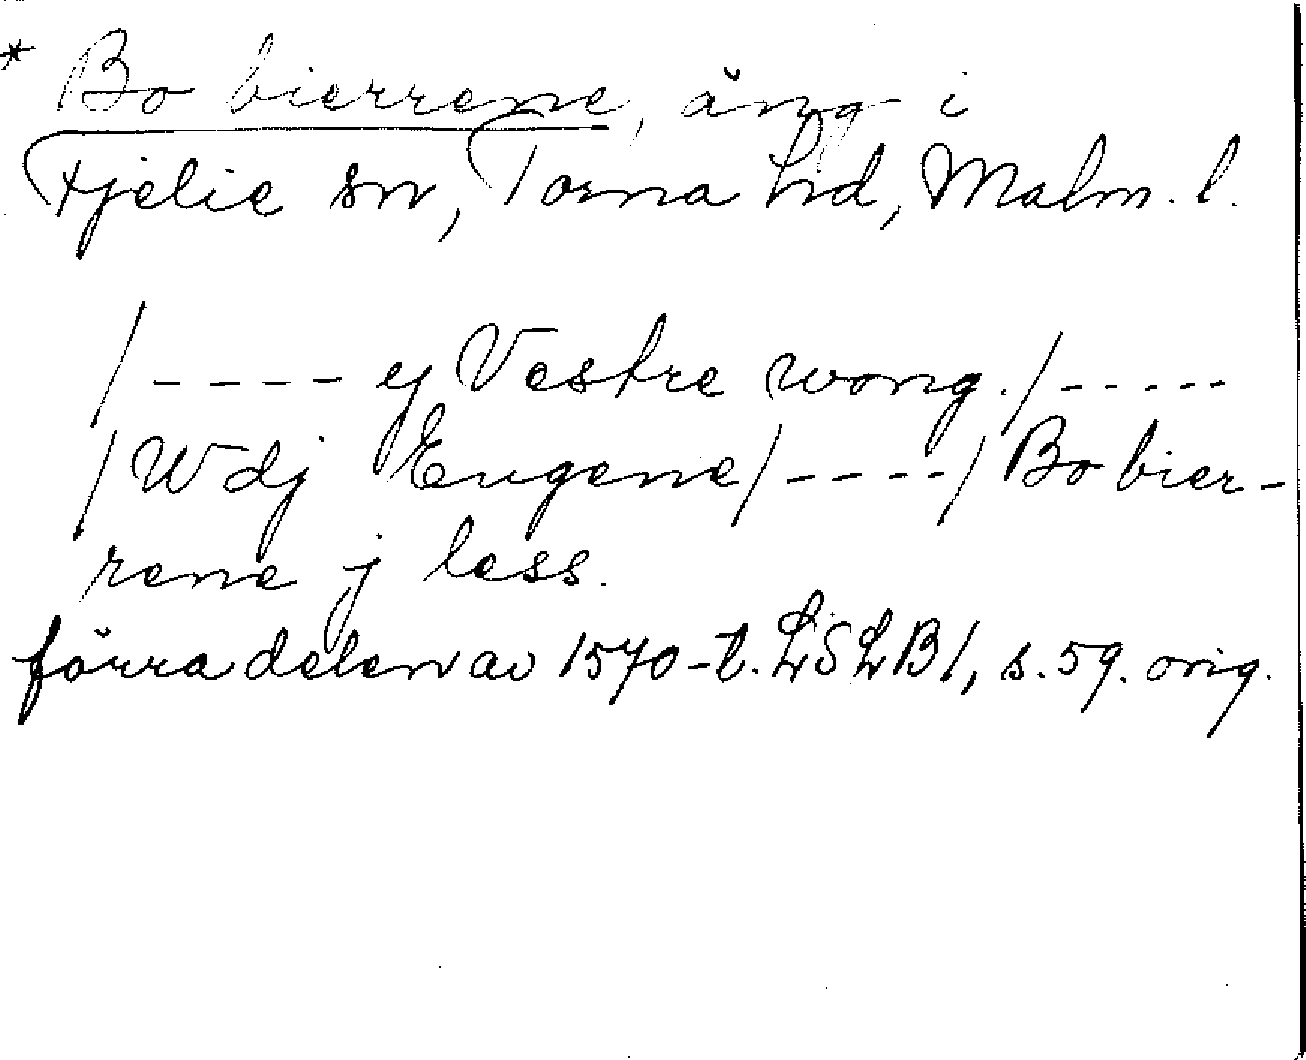 * Bo bierrene, äng i
Fjelie sn, Torna hd, Malm. l.
/ - - - - ej Vestre wong. / - - - - -
/ Wdj Engene / - - - - / Bo bier-
rene j less.
förra delen av 1570-t. LSLB 1, s. 59. orig.